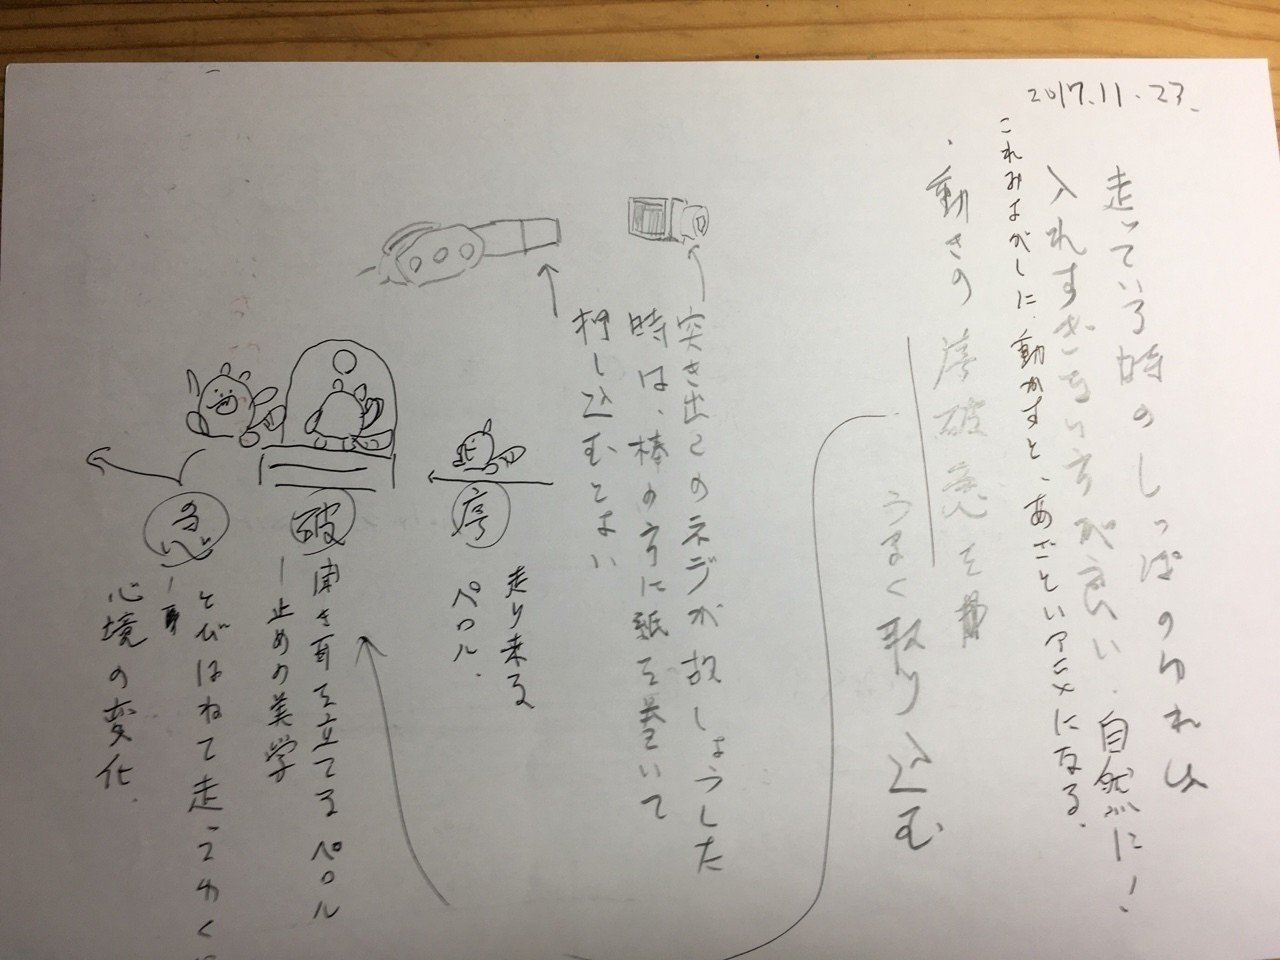 2017.11.23.
走っている時のしっぽのゆれは
入れすぎない方が良い、自然に!
これみよがしに、動かすと、あざといアニメになる。
・動きの序破急を
うまく取り込む
突き出しのネジが故しょうした
時は、棒の方に紙を巻いて
押し込むとよい
序
走り来る
ペロル.
破
聞き耳を立てるペロル
ー止めの美学
急
とびはねて走ってゆく
心境の変化.